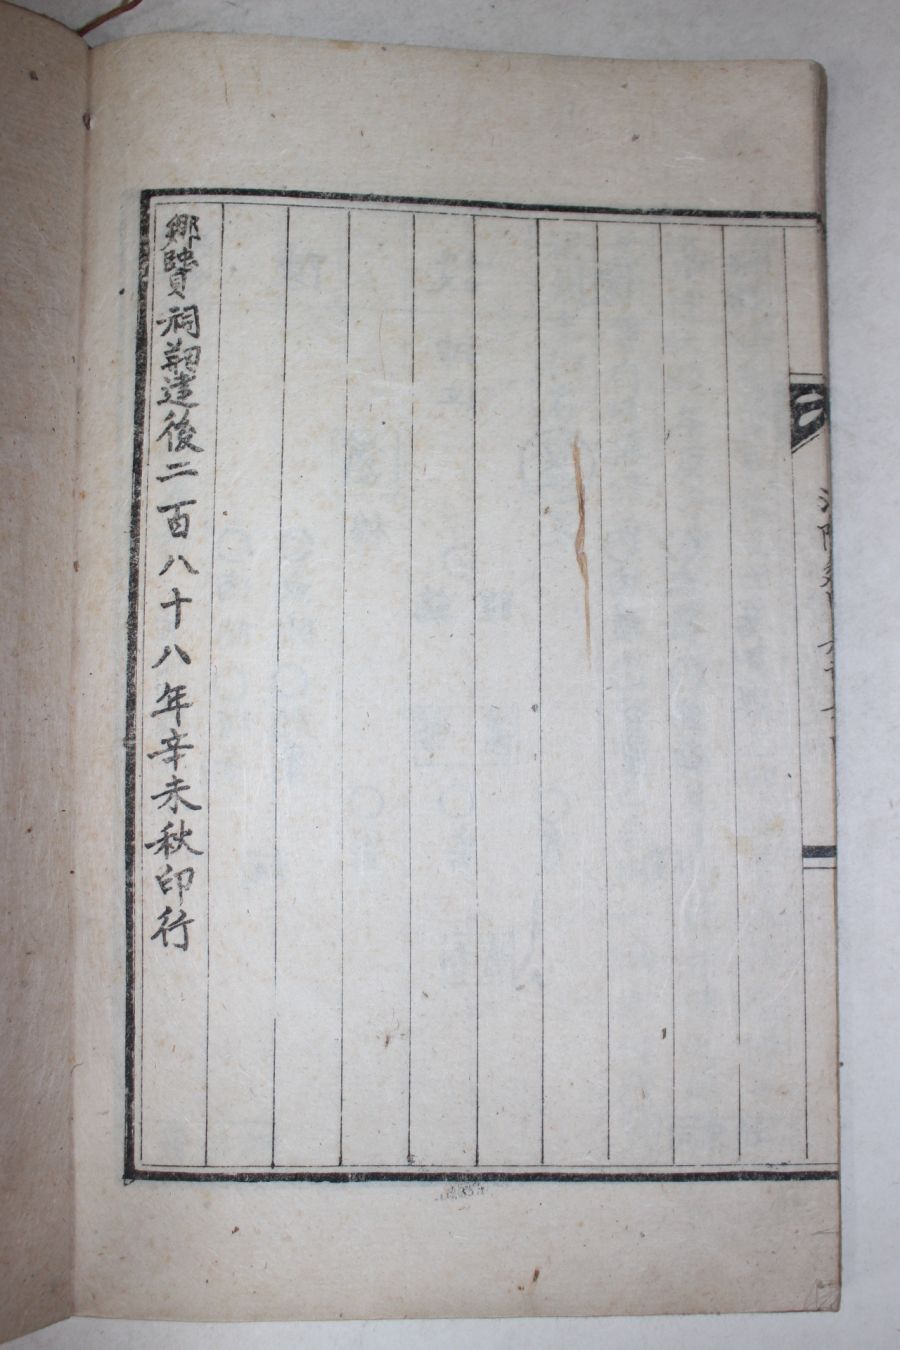 鄉賢祠刱造後二百八十八年辛未秋印行